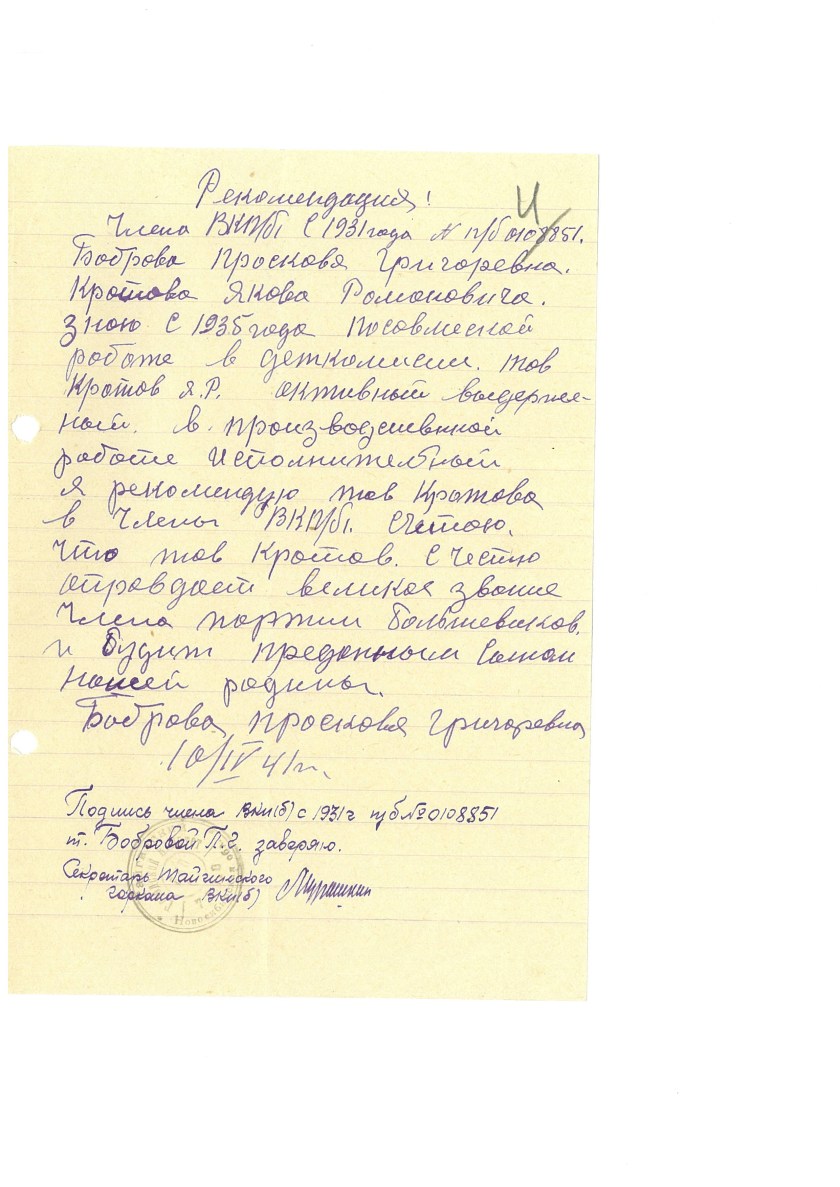 Рекомендация!
4
Члена ВКП/б/ с 1931 года N п/б 0108851.
Боброва Просковя Григоревна.
Кротова Якова Романовича.
знаю с 1935 года посовмесной
работе в деткомисии. тов
Кротов Я.Р. активный выдерже-
ный. в производственной
работе Исполнительный
я рекомендую тов Кротова
в члены ВКП/б/. Считаю.
что тов Кротов. с честю
оправдает великое звание
члена партии большевиков.
и будит преданным сыном
нашей родины.
Боброва Просковя Григоревна
10/IV 41 г.
Подпись члена ВКП(б) с 1931 г п/б № 0108851
т. Бобровой П.Г. заверяю.
Секретарь Тайгинского
горкома ВКП(б) Мурашкин